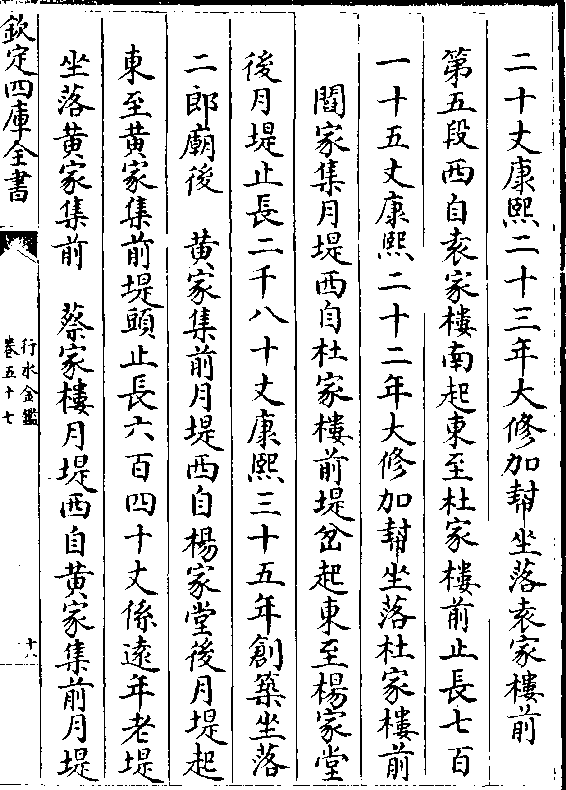 二十丈康熙二十三年大修加幇坐落袁家樓前
第五段西自袁家樓南起東至杜家樓前止長七百
一十五丈康熙二十二年大修加幇坐落杜家樓前
閻家集月堤西自杜家樓前堤岔起東至楊家堂
後月堤止長二千八十丈康熙三十五年創築坐落
二郎廟後　黄家集前月堤西自楊家堂後月堤起
東至黄家集前堤頭止長六百四十丈係遠年老堤
坐落黄家集前　蔡家樓月堤西自黄家集前月堤
欽定四庫全書
行水金鑑
卷五十七
十八